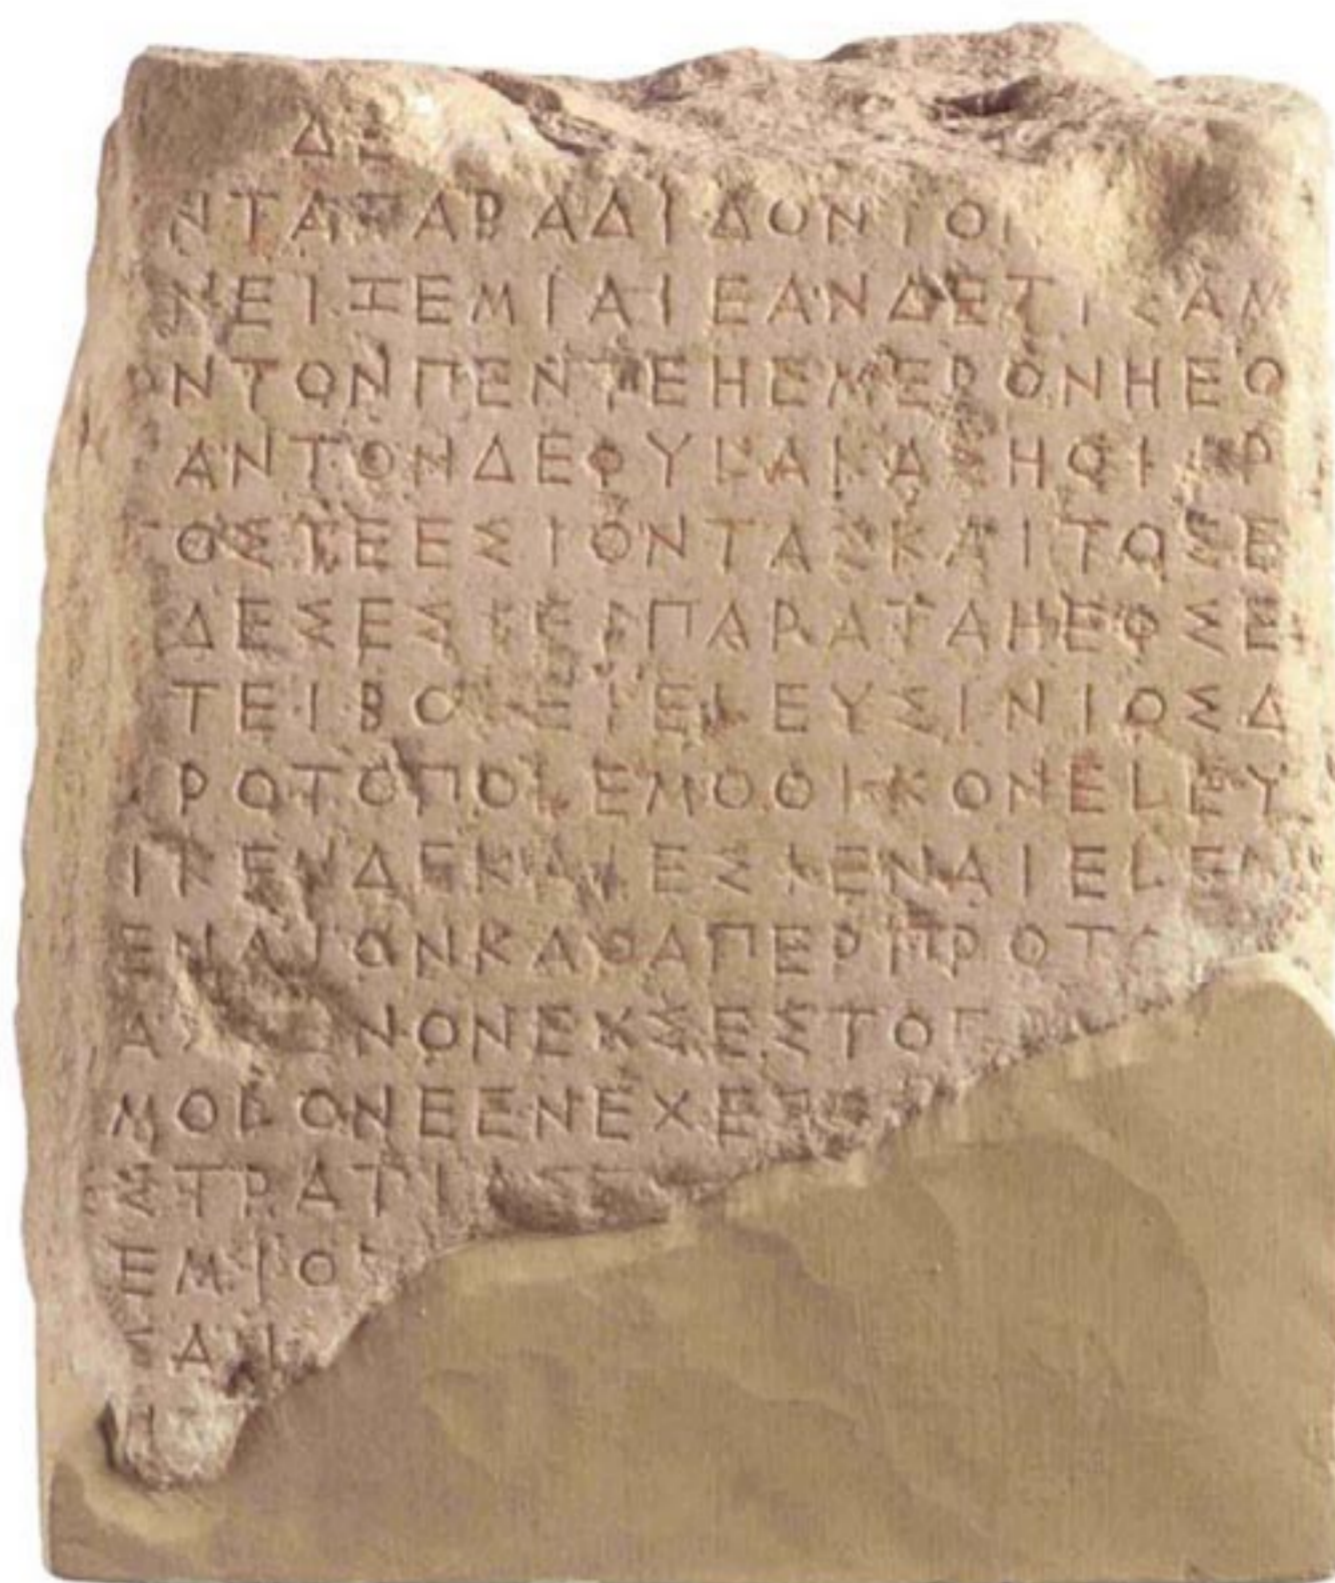 ΔΕ
ΝΤΑΠΑΡΑΔΙΔΟΝΤΟΝ
ΝΕΙΞΕΜΙΑΙΕΑΝΔΕΤΙΣΑΜ
ΝΤΟΝΠΕΝΤΕΗΕΜΕΡΟΝΗΕΟ
ΑΝΤΟΝΔΕΦΥΛΑΚΑΣΗΟΙΠΡ
ΟΣΤΕΕΣΙΟΝΤΑΣΚΑΙΤΟΣΕ
ΔΕΣΕΣΤΕΙΠΑΡΑΤΑΗΕΟΣΕ
ΤΕΙΒΟΛΕΙΕΛΕΥΣΙΝΙΟΣΔ
ΡΟΤΟΠΟΛΕΜΟΟΙΚΟΝΕΛΕΥ
ΕΣΙΕΝΑΙΕΛΕ
ΕΝΑΙΟΝΚΑΘΑΠΕΡΠΡΟΤ
ΝΟΝΕΚΣΕΣΤΟ
ΜΟΛΟΝΕΕΝΕΧΕ
ΣΤΡΑΤΙ
ΕΜΙΟ
ΣΑΙ